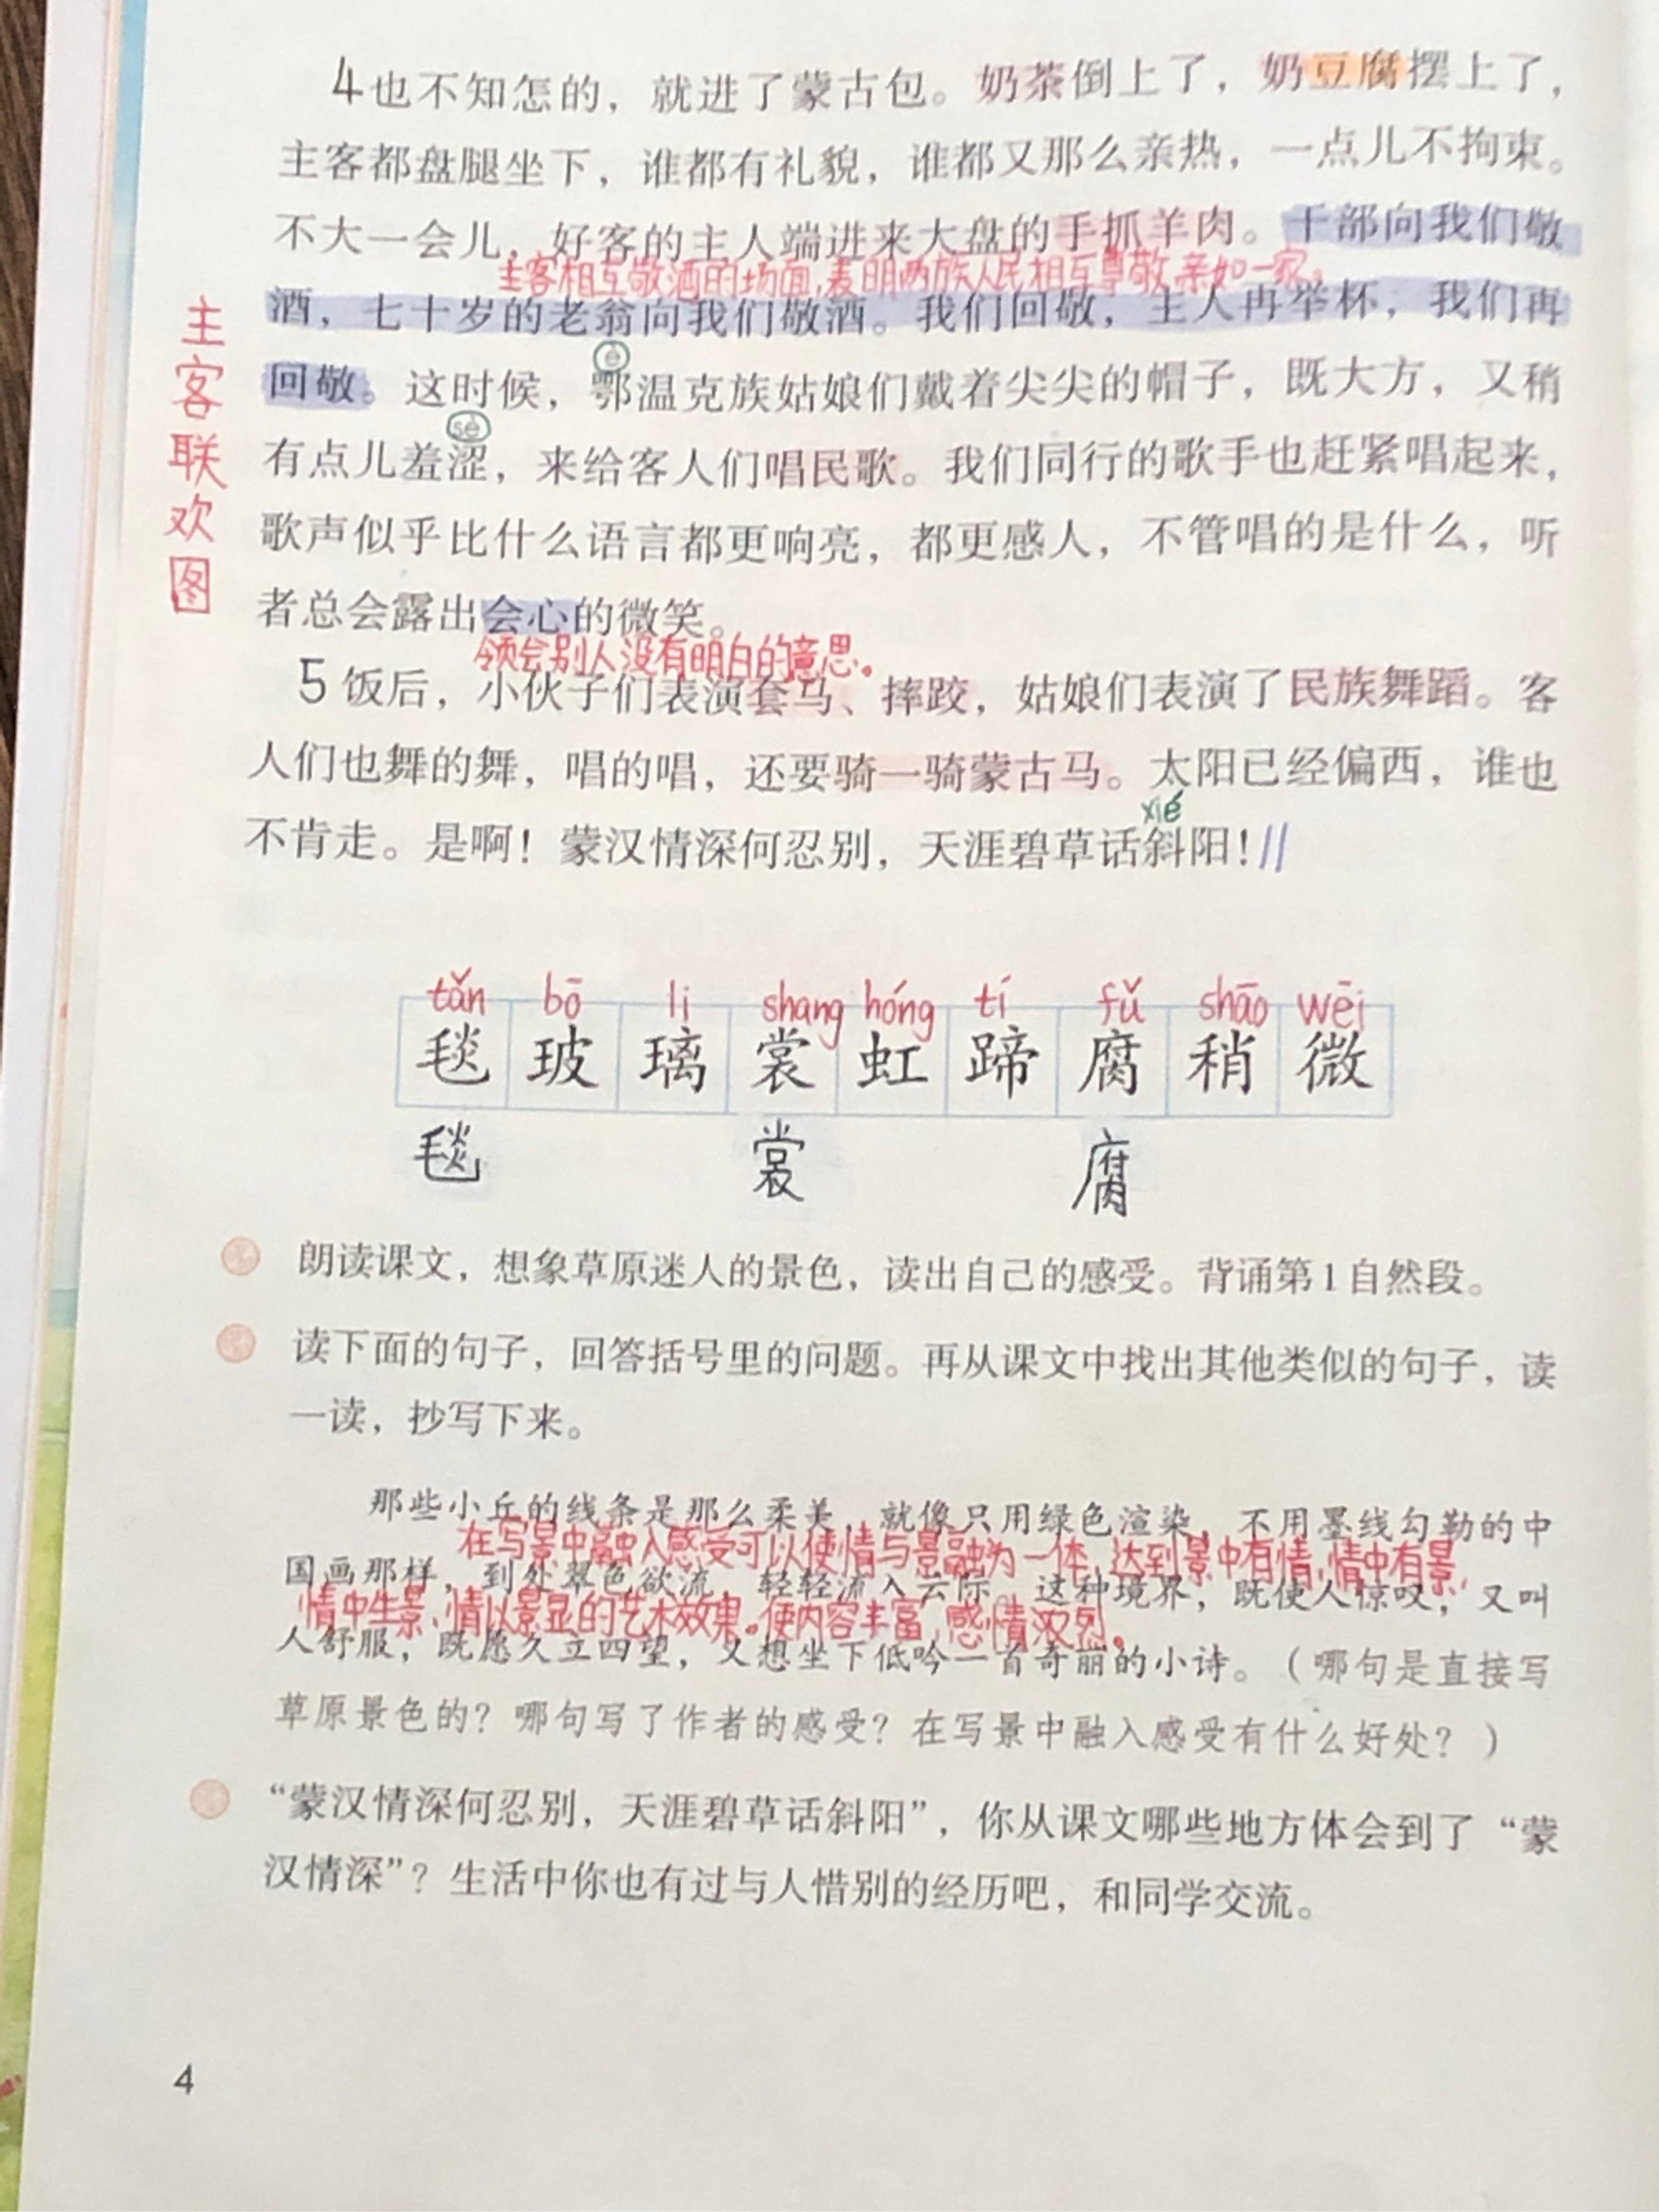 4也不知怎的，就进了蒙古包。奶茶倒上了，奶豆腐摆上了，
主客都盘腿坐下，谁都有礼貌，谁都又那么亲热，一点儿不拘束。
不大一会儿，好客的主人端进来大盘的手抓羊肉。干部向我们敬
主客相互敬酒的场面，表明两族人民相互尊敬，亲如一家。
酒，七十岁的老翁向我们敬酒。我们回敬，主人再举杯，我们再
è
回敬。这时候，鄂温克族姑娘们戴着尖尖的帽子，既大方，又稍
sè
有点儿羞涩，来给客人们唱民歌。我们同行的歌手也赶紧唱起来，
歌声似乎比什么语言都更响亮，都更感人，不管唱的是什么，听
者总会露出会心的微笑。
领会别人没有明白的意思。
主客联欢图
5饭后，小伙子们表演套马、摔跤，姑娘们表演了民族舞蹈。客
人们也舞的舞，唱的唱，还要骑一骑蒙古马。太阳已经偏西，谁也
xié
不肯走。是啊！蒙汉情深何忍别，天涯碧草话斜阳！//
tǎn bō li shang hóng tí fǔ shāo wēi
毯 玻 璃 裳 虹 蹄 腐 稍 微
毯 裳 腐
朗读课文，想象草原迷人的景色，读出自己的感受。背诵第1自然段。
读下面的句子，回答括号里的问题。再从课文中找出其他类似的句子，读
一读，抄写下来。
那些小丘的线条是那么柔美，就像只用绿色渲染，不用墨线勾勒的中
在写景中融入感受可以使情与景融为一体，达到景中有情，情中有景，
国画那样，到处翠色欲流，轻轻流入云际。这种境界，既使人惊叹，又叫
情中生景、情以景显的艺术效果。使内容丰富，感情浓烈。
人舒服，既愿久立四望，又想坐下低吟一首奇丽的小诗。（哪句是直接写
草原景色的？哪句写了作者的感受？在写景中融入感受有什么好处？）
“蒙汉情深何忍别，天涯碧草话斜阳”，你从课文哪些地方体会到了“蒙
汉情深”？生活中你也有过与人惜别的经历吧，和同学交流。
4